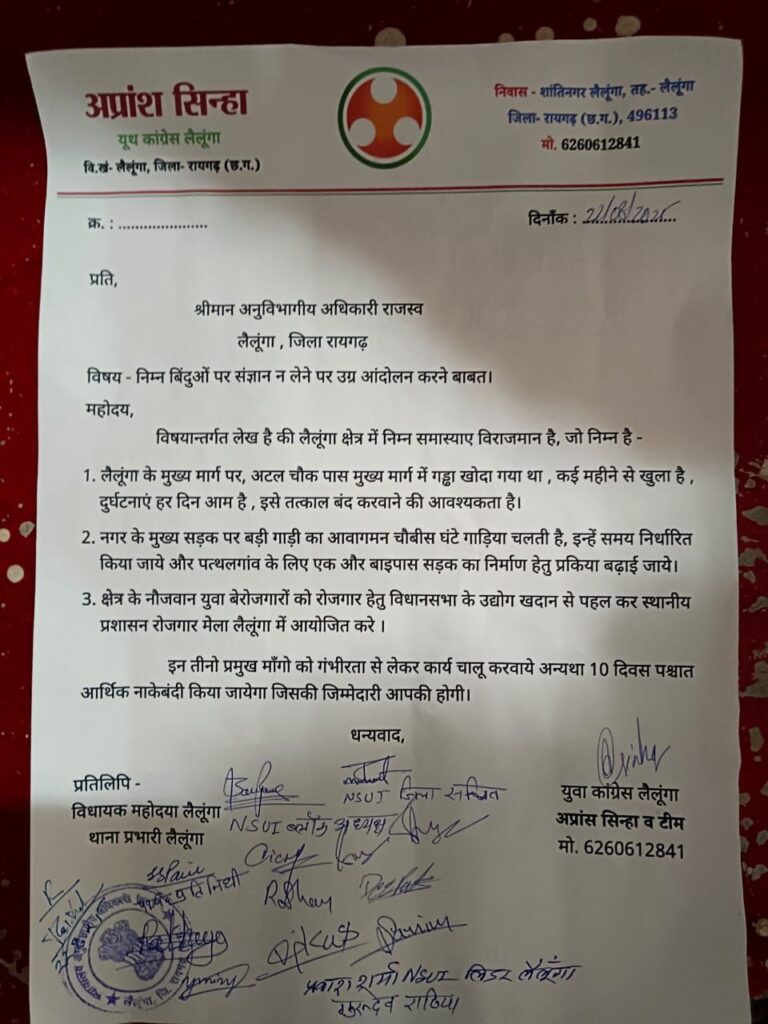 अप्रांश सिन्हा
यूथ कांग्रेस लैलूंगा
वि.खं- लैलूंगा, जिला- रायगढ़ (छ.ग.)
निवास - शांतिनगर लैलूंगा, तह.- लैलूंगा
जिला- रायगढ़ (छ.ग.), 496113
मो. 6260612841
क्र. : ......................
दिनाँक : 22/08/2025
प्रति,
श्रीमान अनुविभागीय अधिकारी राजस्व
लैलूंगा , जिला रायगढ़
विषय - निम्न बिंदुओं पर संज्ञान न लेने पर उग्र आंदोलन करने बाबत।
महोदय,
विषयान्तर्गत लेख है की लैलूंगा क्षेत्र में निम्न समास्याए विराजमान है, जो निम्न है -
1. लैलूंगा के मुख्य मार्ग पर, अटल चौक पास मुख्य मार्ग में गड्ढा खोदा गया था , कई महीने से खुला है ,
दुर्घटनाएं हर दिन आम है , इसे तत्काल बंद करवाने की आवश्यकता है।
2. नगर के मुख्य सड़क पर बड़ी गाड़ी का आवागमन चौबीस घंटे गाड़िया चलती है, इन्हें समय निर्धारित
किया जाये और पत्थलगांव के लिए एक और बाइपास सड़क का निर्माण हेतु प्रकिया बढ़ाई जाये।
3. क्षेत्र के नौजवान युवा बेरोजगारों को रोजगार हेतु विधानसभा के उद्योग खदान से पहल कर स्थानीय
प्रशासन रोजगार मेला लैलूंगा में आयोजित करे ।
इन तीनो प्रमुख माँगो को गंभीरता से लेकर कार्य चालू करवाये अन्यथा 10 दिवस पश्चात
आर्थिक नाकेबंदी किया जायेगा जिसकी जिम्मेदारी आपकी होगी।
धन्यवाद,
प्रतिलिपि -
विधायक महोदया लैलूंगा
थाना प्रभारी लैलूंगा
NSUI जिला सचिव
NSUI ब्लॉक अध्यक्ष
युवा कांग्रेस लैलूंगा
अप्रांस सिन्हा व टीम
मो. 6260612841
प्रकाश शर्मा NSUI लिडर लैलूँगा
गुरुदेव राठिया